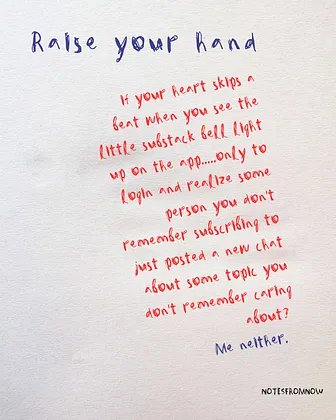 Raise your hand
if your heart skips a
beat when you see the
little substack bell light
up on the app.....only to
login and realize some
person you don't
remember subscribing to
just posted a new chat
about some topic you
don't remember caring
about?
Me neither.
NOTESFROMNOW